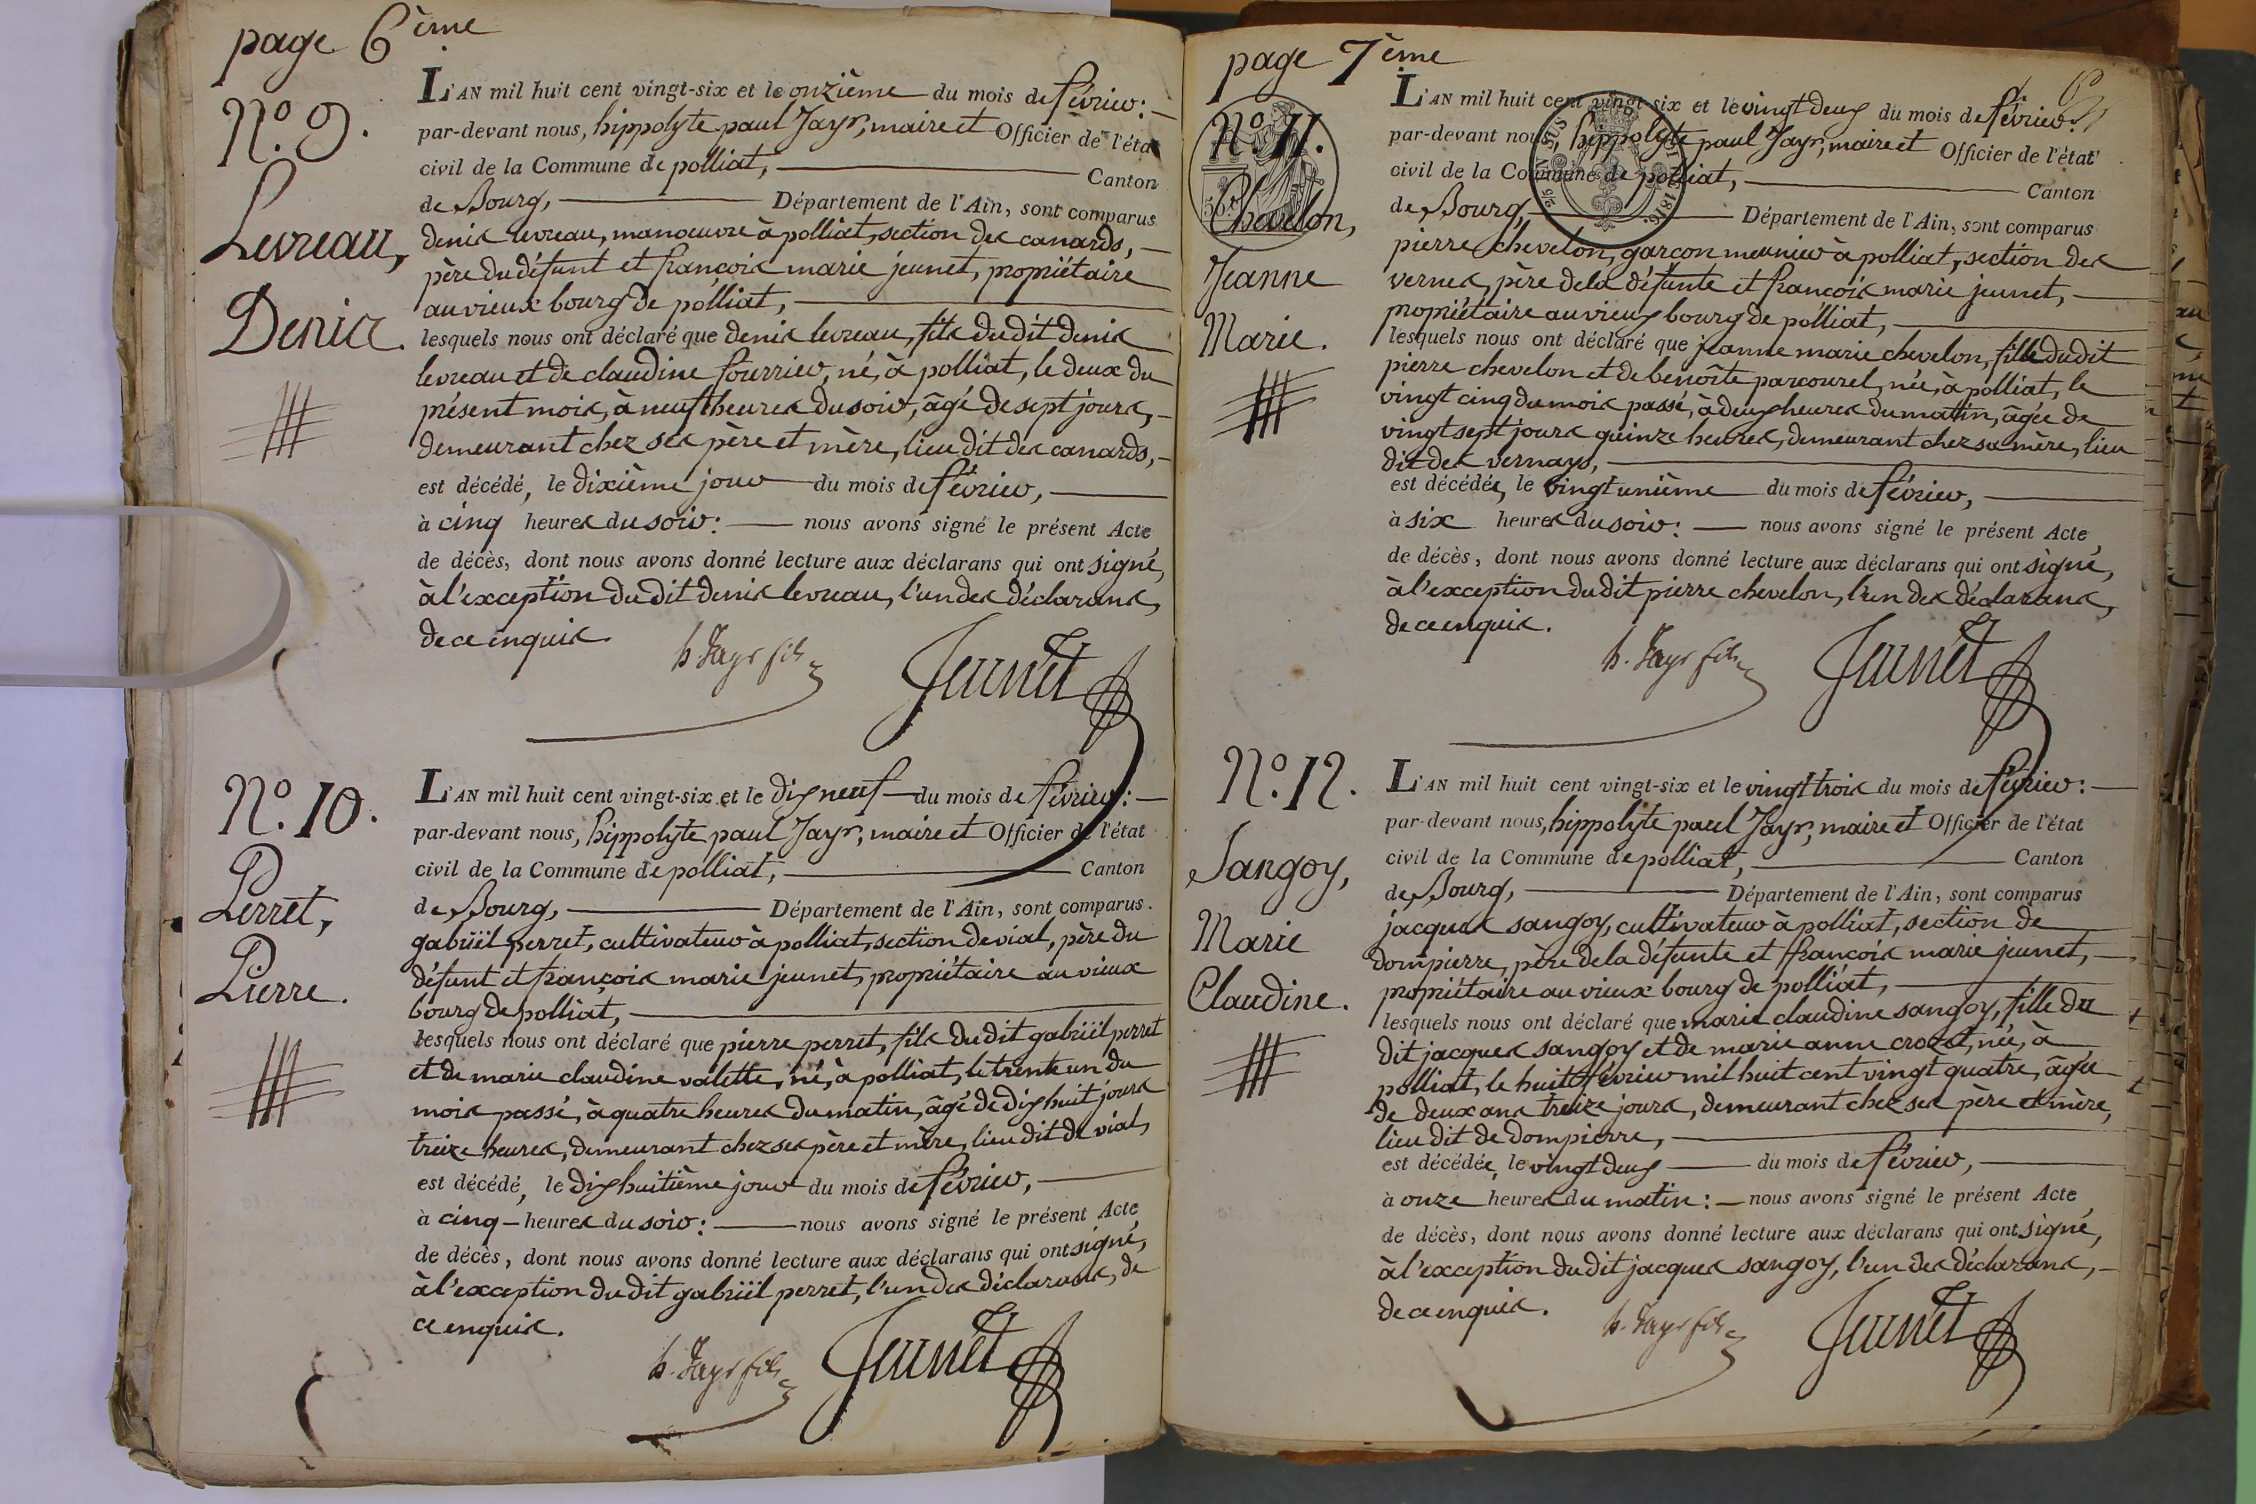 page 6ème
N.º 9.
Levreau,
Denis.
L'AN mil huit cent vingt-six et le onzième du mois de février:
par-devant nous, hippolyte paul Jayr, maire et Officier de l'état
civil de la Commune de polliat, Canton
de Bourg, Département de l'Ain, sont comparus
denis levreau, manœuvre à polliat, section des canards,
père du défunt et françois marie jeunet, propriétaire
au vieux bourg de polliat,
lesquels nous ont déclaré que denis levreau, fils du dit denis
levreau et de claudine fourrier, né, à polliat, le deux du
présent mois, à neuf heures du soir, âgé de sept jours,
demeurant chez ses père et mère, lieu dit des canards,
est décédé, le dixième jour du mois de février,
à cinq heures du soir: nous avons signé le présent Acte
de décès, dont nous avons donné lecture aux déclarans qui ont signé,
à l'exception du dit denis levreau, l'un des déclarans,
de ce enquis.
h. Jayr fils Jeunet
N.º 10.
Perret,
Pierre.
L'AN mil huit cent vingt-six et le dix neuf du mois de février:
par-devant nous, hippolyte paul Jayr, maire et Officier de l'état
civil de la Commune de polliat, Canton
de Bourg, Département de l'Ain, sont comparus.
gabriël perret, cultivateur à polliat, section de vial, père du
défunt et françois marie jeunet, propriétaire au vieux
bourg de polliat,
lesquels nous ont déclaré que pierre perret, fils du dit gabriël perret
et de marie claudine valette, né, à polliat, le trente un du
mois passé, à quatre heures du matin, âgé de dix huit jours
treize heures, demeurant chez ses père et mère, lieu dit de vial,
est décédé, le dix huitième jour du mois de février,
à cinq heures du soir: nous avons signé le présent Acte
de décès, dont nous avons donné lecture aux déclarans qui ont signé,
à l'exception du dit gabriël perret, l'un des déclarans, de
ce enquis.
h. Jayr fils Jeunet
page 7ème
N.º 11.
Chevelon,
Jeanne
Marie.
L'AN mil huit cent vingt-six et le vingt deux du mois de février:
par-devant nous, hippolyte paul Jayr, maire et Officier de l'état
civil de la Commune de polliat, Canton
de Bourg, Département de l'Ain, sont comparus
pierre chevelon, garçon meunier à polliat, section des
vernes, père de la défunte et françois marie jeunet,
propriétaire au vieux bourg de polliat,
lesquels nous ont déclaré que jeanne marie chevelon, fille du dit
pierre chevelon et de benoîte parcourel, née, à polliat, le
vingt cinq du mois passé, à deux heures du matin, âgée de
vingt sept jours quinze heures, demeurant chez sa mère, lieu
dit des vernays,
est décédée, le vingt unième du mois de février,
à six heures du soir: nous avons signé le présent Acte
de décès, dont nous avons donné lecture aux déclarans qui ont signé,
à l'exception du dit pierre chevelon, l'un des déclarans,
de ce enquis.
h. Jayr fils Jeunet
N.º 12.
Sangoy,
Marie
Claudine.
L'AN mil huit cent vingt-six et le vingt trois du mois de février:
par-devant nous, hippolyte paul Jayr, maire et Officier de l'état
civil de la Commune de polliat, Canton
de Bourg, Département de l'Ain, sont comparus
jacques sangoy, cultivateur à polliat, section de
dompierre, père de la défunte et françois marie jeunet,
propriétaire au vieux bourg de polliat,
lesquels nous ont déclaré que marie claudine sangoy, fille du
dit jacques sangoy et de marie anne crozet, née, à
polliat, le huit février mil huit cent vingt quatre, âgée
de deux ans treize jours, demeurant chez ses père et mère,
lieu dit de dompierre,
est décédée, le vingt deux du mois de février,
à onze heures du matin: nous avons signé le présent Acte
de décès, dont nous avons donné lecture aux déclarans qui ont signé,
à l'exception du dit jacques sangoy, l'un des déclarans,
de ce enquis.
h. Jayr fils Jeunet